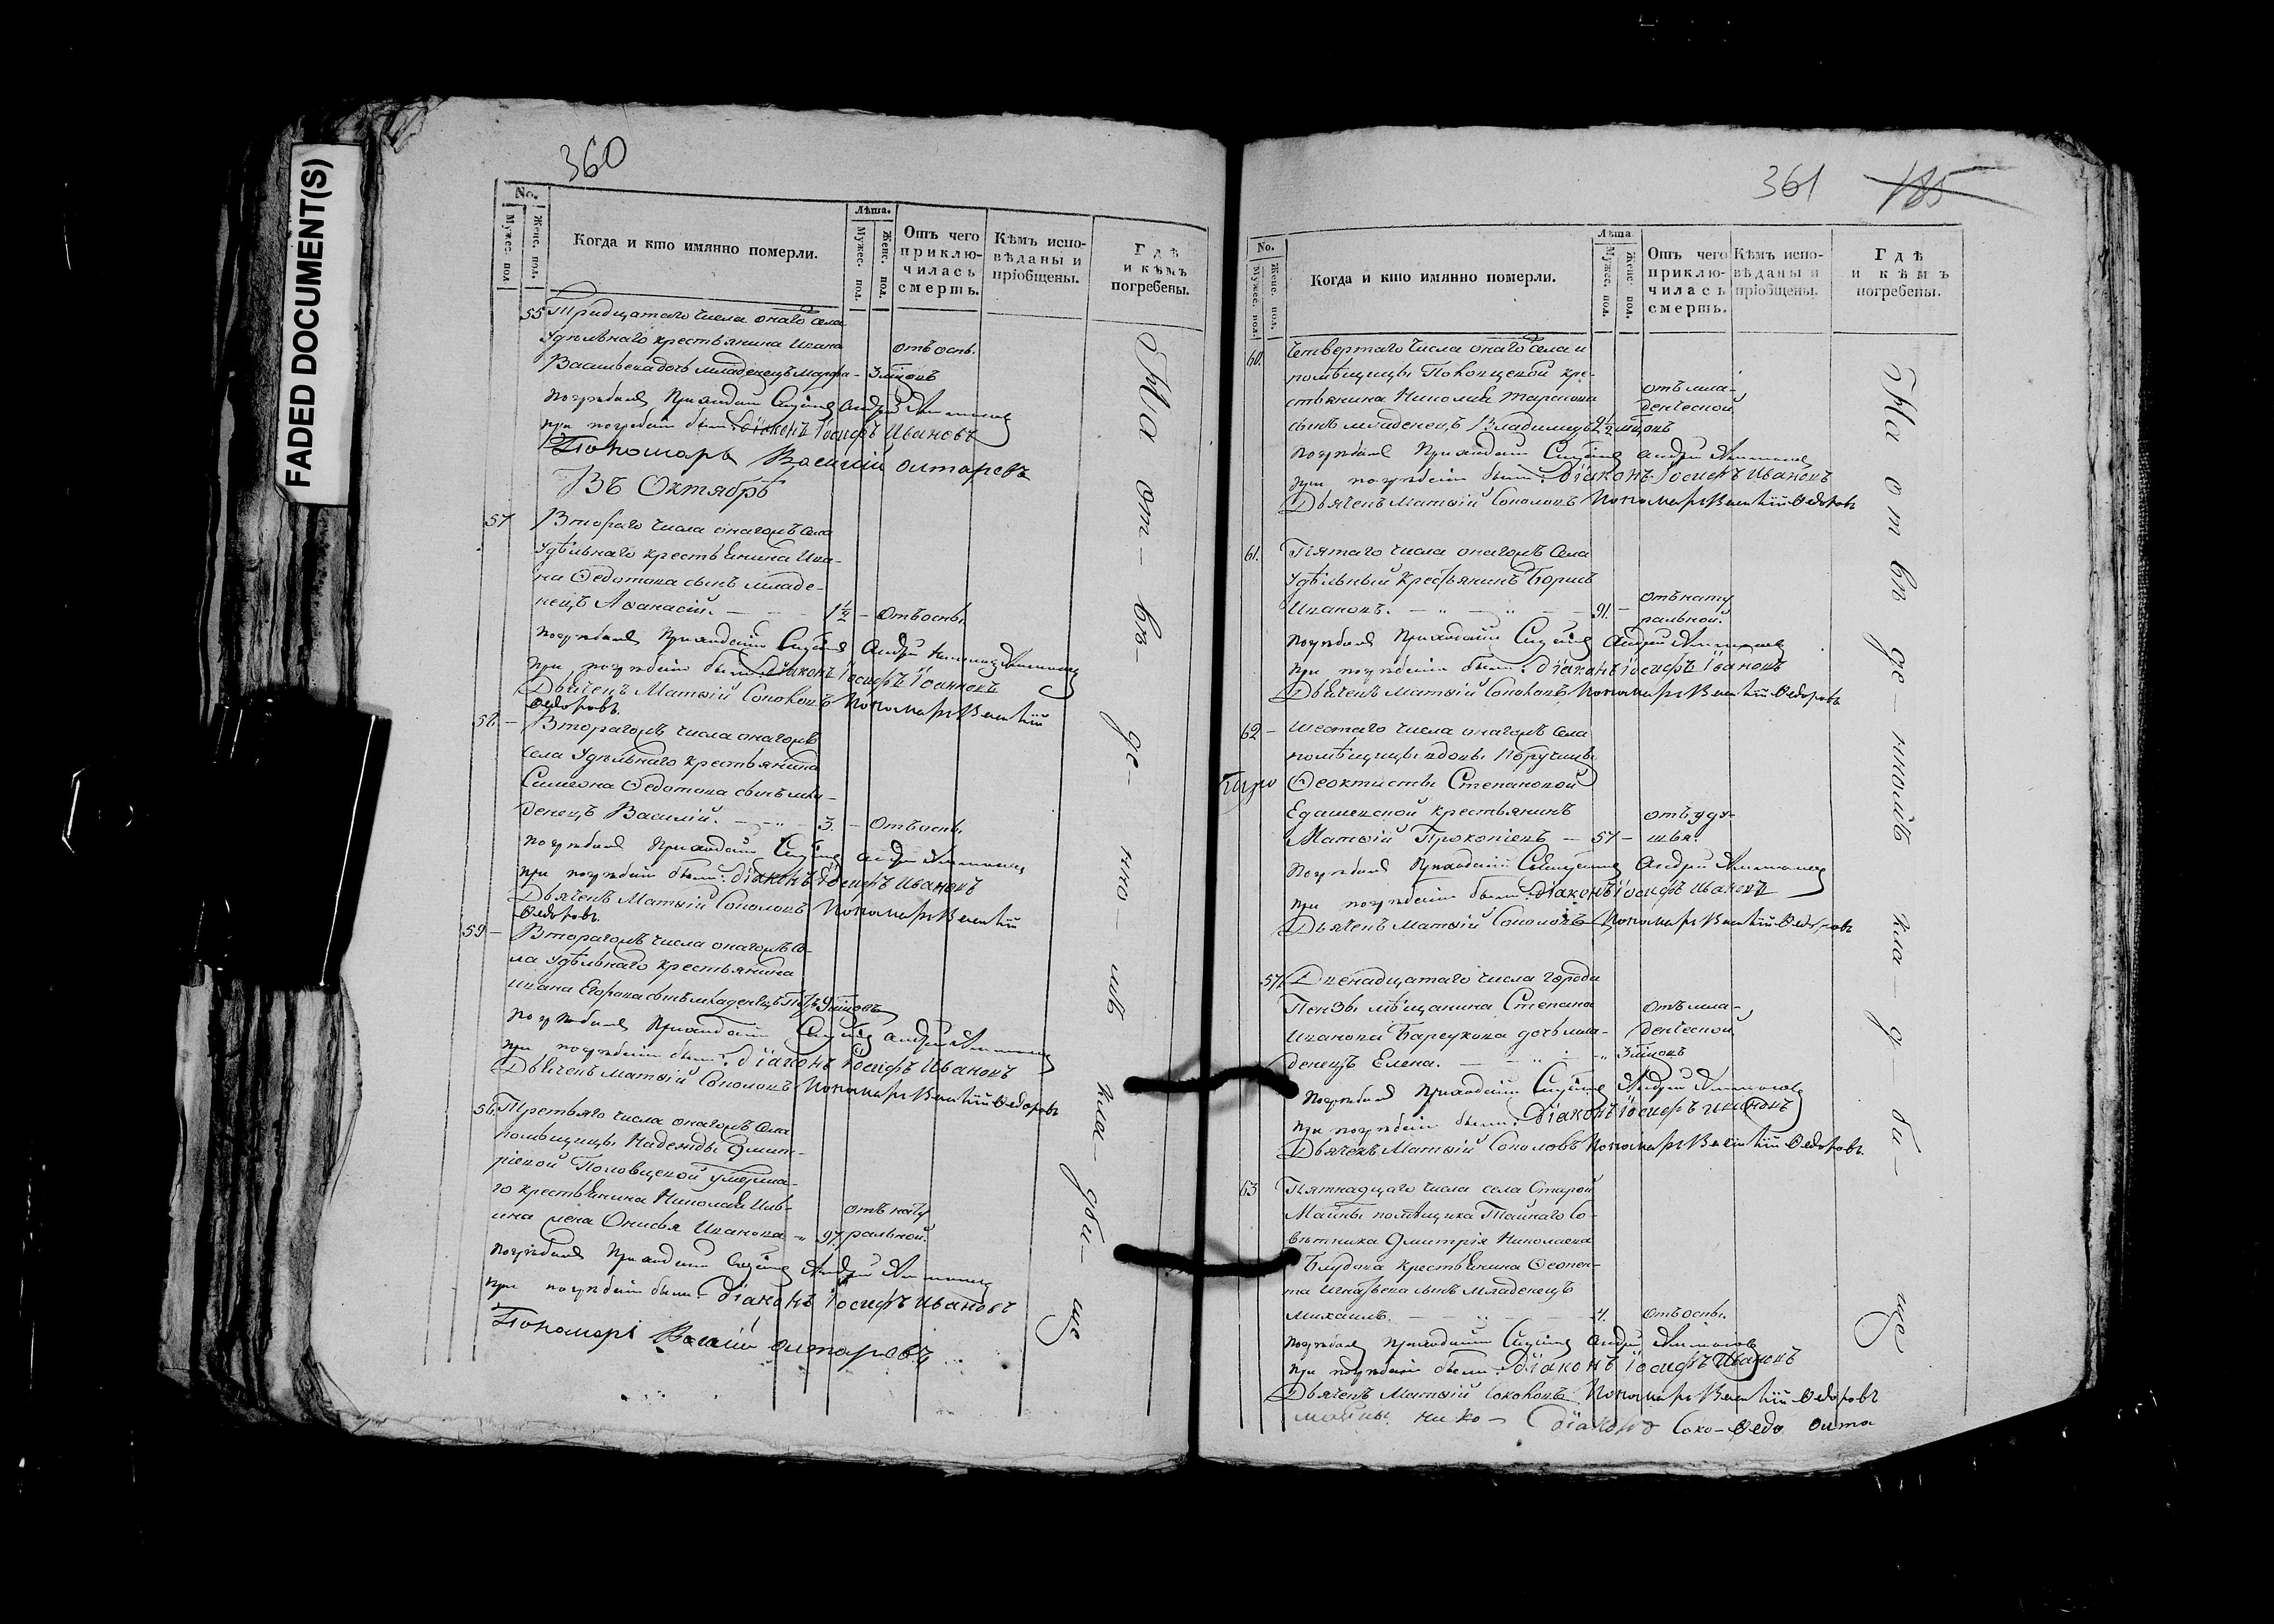 FADED DOCUMENT(S)
360
No.
Мужес. пол.
Женс. пол.
Когда и кто имянно померли.
Лѣта.
Мужес. пол.
Женс. пол.
Отъ чего приклю-
чилась
смерть.
Кѣмъ испо-
вѣданы и
пріобщены.
Гдѣ
и кѣмъ
погребены.
55 Тридцатаго числа онаго села
Удѣльнаго крестьянина Ивана
Васильева дочь младенецъ Марфа - 3 мѣцовъ
отъ оспы.
погребалъ Приходскій Андрей
при погребеніи были: Діаконъ Іосифъ Ивановъ
Пономарь Василій Олтаревъ
Въ Октябрѣ
57 Втораго числа онагожъ села
Удѣльнаго крестьянина Ива-
на Ѳедотова сынъ младе-
нецъ Аѳанасій. 1½ - отъ оспы.
погребалъ Приходскій Андрей
при погребеніи были: Діаконъ Іосифъ Іоанновъ
Дьячекъ Матвій Соколовъ Пономарь Василій
Ѳедоровъ.
58. - Вторагожъ числа онагожъ
села Удѣльнаго крестьянина
Симеона Ѳедотова сынъ мла-
денецъ Василій. 3. - отъ оспы.
погребалъ Приходскій Андрей
при погребеніи были: Діаконъ Іосифъ Ивановъ
Дьячекъ Матвій Соколовъ Пономарь Василій
Ѳедоровъ.
59 - Вторагожъ числа онагожъ се-
ла Удѣльнаго крестьянина
Ивана Егорова сынъ младенецъ
погребалъ Приходскій Андрей
при погребеніи были: Діаконъ Іосифъ Ивановъ
Дьячекъ Матвій Соколовъ Пономарь Василій Ѳедоровъ
56. Третьяго числа онагожъ села
помѣщицы Надежды Дмит-
ріевой умерша-
го крестьянина Николая Иль-
ина жена Онисья Иванова 97. отъ нату
ральной.
погребалъ Приходскій Андрей
при погребеніи были: Діаконъ Іосифъ Ивановъ
Пономарь Василій Олтаревъ
На от- вѣ- де- нно- мъ кла- дби- ще
361 185
No.
Мужес. пол.
Женс. пол.
Когда и кто имянно померли.
Лѣта
Мужес. пол.
Женс. пол.
Отъ чего
приклю-
чилась
смерть.
Кѣмъ испо-
вѣданы и
пріобщены.
Гдѣ
и кѣмъ
погребены.
60. Четвертаго числа онаго села и
помѣщицы кре-
стьянина Николая Тарасова
сынъ младенецъ Владимиръ 2½ мѣцовъ
отъ мла-
денческой
погребалъ Приходскій Андрей
при погребеніи были: Діаконъ Іосифъ Ивановъ
Дьячекъ Матвій Соколовъ Пономарь Василій Ѳедоровъ
61. Пятаго числа онагожъ села
Удѣльный крестьянинъ Борисъ
Ивановъ. 91. - отъ нату
ральной.
погребалъ Приходскій Андрей
при погребеніи были: Діаконъ Іосифъ Ивановъ
Дьячекъ Матвій Соколовъ Пономарь Василій Ѳедоровъ
62 - Шестаго числа онагожъ села
помѣщицы вдовы Поручицы
Ѳеоктисты Степановой
крестьянинъ
Матвій Прокопіевъ - 57 - отъ уду-
шья.
погребалъ Приходскій Священникъ Андрей
при погребеніи были: Діаконъ Іосифъ Ивановъ
Дьячекъ Матвій Соколовъ Пономарь Василій Ѳедоровъ
57. Двенадцатаго числа города
Пензы мѣщанина Степана
Иванова дочь мла-
денецъ Елена. 3 мѣцовъ
отъ мла-
денческой
погребалъ Приходскій Андрей
при погребеніи были: Діаконъ Іосифъ Ивановъ
Дьячекъ Матвій Соколовъ Пономарь Василій Ѳедоровъ.
63 Пятнадцаго числа села Старой
Майны помѣщика Тайнаго Со-
вѣтника Дмитрія Николаева
Блудова крестьянина Ѳеопен-
та Игнатьева сынъ младенецъ
Михаилъ. 4. отъ оспы.
погребалъ Приходскій Андрей
при погребеніи были: Діаконъ Іосифъ Ивановъ
Дьячекъ Матвій Соколовъ Пономарь Василій Ѳедоровъ
Майны Нико- Діаконъ Соко- Ѳедо Олта
На от вѣ де- нномъ кла- д- би- ще